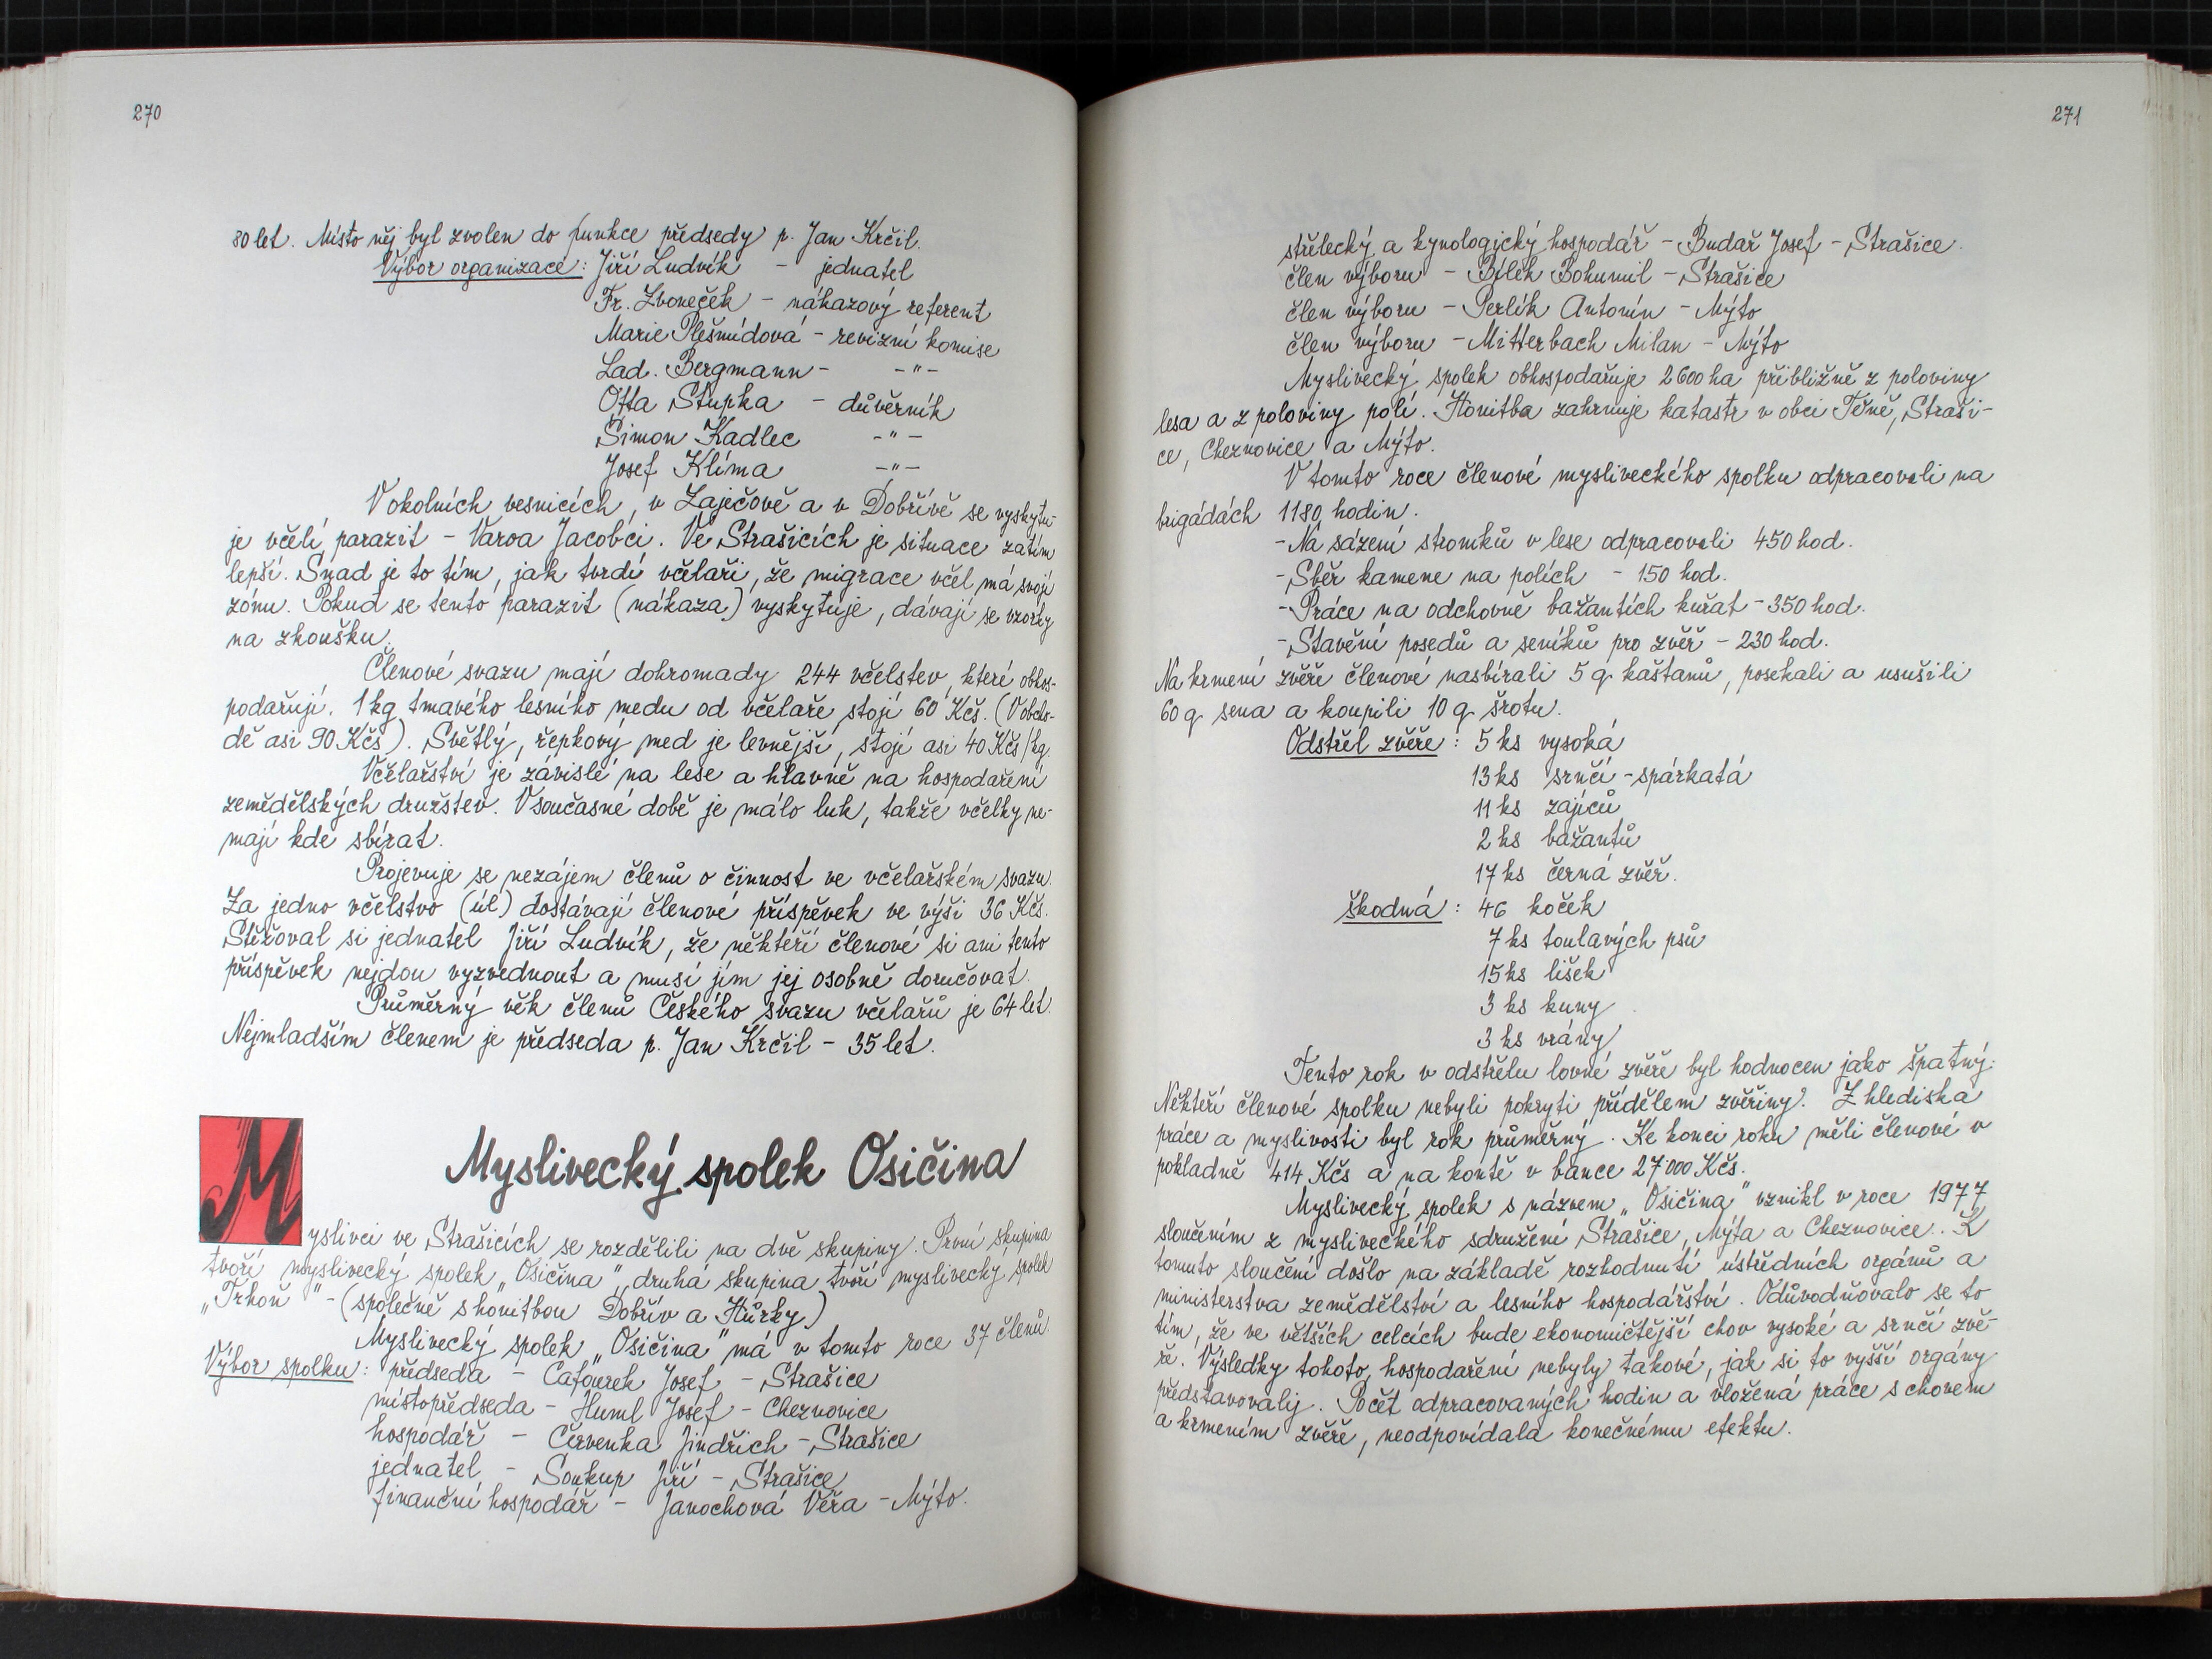 270
80 let. Místo něj byl zvolen do funkce předsedy p. Jan Krčil.
Výbor organizace: Jiří Ludvík - jednatel
Fr. Zvoneček - nákazový referent
Marie Plešmídová - revizní komise
Lad. Bergmann - -"-
Otta Stupka - důvěrník
Šimon Kadlec -"-
Josef Klíma -"-
V okolních vesnicích, v Zaječově a v Dobřívě se vyskytu-
je včelí parazit - Varoa Jacobci. Ve Strašicích je situace zatím
lepší. Snad je to tím, jak tvrdí včelaři, že migrace včel má svoji
zónu. Pokud se tento parazit (nákaza) vyskytuje, dávají se vzorky
na zkoušku.
Členové svazu mají dohromady 244 včelstev, které obhos-
podařují. 1 kg tmavého lesního medu od včelaře stojí 60 Kčs. (V obcho-
dě asi 90 Kčs). Světlý, řepkový med je levnější, stojí asi 40 Kčs/kg.
Včelařství je závislé na lese a hlavně na hospodaření
zemědělských družstev. V současné době je málo luk, takže včelky ne-
mají kde sbírat.
Projevuje se nezájem členů o činnost ve včelařském svazu.
Za jedno včelstvo (úl) dostávají členové příspěvek ve výši 36 Kčs.
Stěžoval si jednatel Jiří Ludvík, že někteří členové si ani tento
příspěvek nejdou vyzvednout a musí jim jej osobně doručovat.
Průměrný věk členů Českého svazu včelařů je 64 let.
Nejmladším členem je předseda p. Jan Krčil - 35 let.
Myslivecký spolek Osičina
Myslivci ve Strašicích se rozdělili na dvě skupiny. První skupina
tvoří myslivecký spolek „Osičina", druhá skupina tvoří myslivecký spolek
„Trhoň" - (společně s honitbou Dobřív a Hůrky)
Myslivecký spolek „Osičina" má v tomto roce 37 členů.
Výbor spolku: předseda - Cafourek Josef - Strašice
místopředseda - Huml Josef - Cheznovice
hospodář - Červenka Jindřich - Strašice
jednatel - Soukup Jiří - Strašice
finanční hospodář - Janochová Věra - Mýto.
271
střelecký a kynologický hospodář - Budař Josef - Strašice.
člen výboru - Bílek Bohumil - Strašice
člen výboru - Perlík Antonín - Mýto
člen výboru - Mitterbach Milan - Mýto
Myslivecký spolek obhospodařuje 2600 ha přibližně z poloviny
lesa a z poloviny polí. Honitba zahrnuje katastr v obci Těně, Straši-
ce, Cheznovice a Mýto.
V tomto roce členové mysliveckého spolku odpracovali na
brigádách 1180 hodin.
- Na sázení stromků v lese odpracovali 450 hod.
- Sběr kamene na polích - 150 hod.
- Práce na odchovně bažantích kuřat - 350 hod.
- Stavění posedů a seníků pro zvěř - 230 hod.
Na krmení zvěře členové nasbírali 5 q kaštanů, posekali a usušili
60 q sena a koupili 10 q šrotu.
Odstřel zvěře: 5 ks vysoká
13 ks srnčí - spárkatá
11 ks zajíců
2 ks bažantů
17 ks černá zvěř.
škodná: 46 koček
7 ks toulavých psů
15 ks lišek
3 ks kuny
3 ks vrány
Tento rok v odstřelu lovné zvěře byl hodnocen jako špatný.
Někteří členové spolku nebyli pokryti přídělem zvěřiny. Z hlediska
práce a myslivosti byl rok průměrný. Ke konci roku měli členové v
pokladně 414 Kčs a na kontě v bance 27 000 Kčs.
Myslivecký spolek s názvem „Osičina" vznikl v roce 1977
sloučením z mysliveckého sdružení Strašice, Mýta a Cheznovice. K
tomuto sloučení došlo na základě rozhodnutí ústředních orgánů a
ministerstva zemědělství a lesního hospodářství. Odůvodňovalo se to
tím, že ve větších celcích bude ekonomičtější chov vysoké a srnčí zvě-
ře. Výsledky tohoto hospodaření nebyly takové, jak si to vyšší orgány
představovaly. Počet odpracovaných hodin a vložená práce s chovem
a krmením zvěře, neodpovídala konečnému efektu.